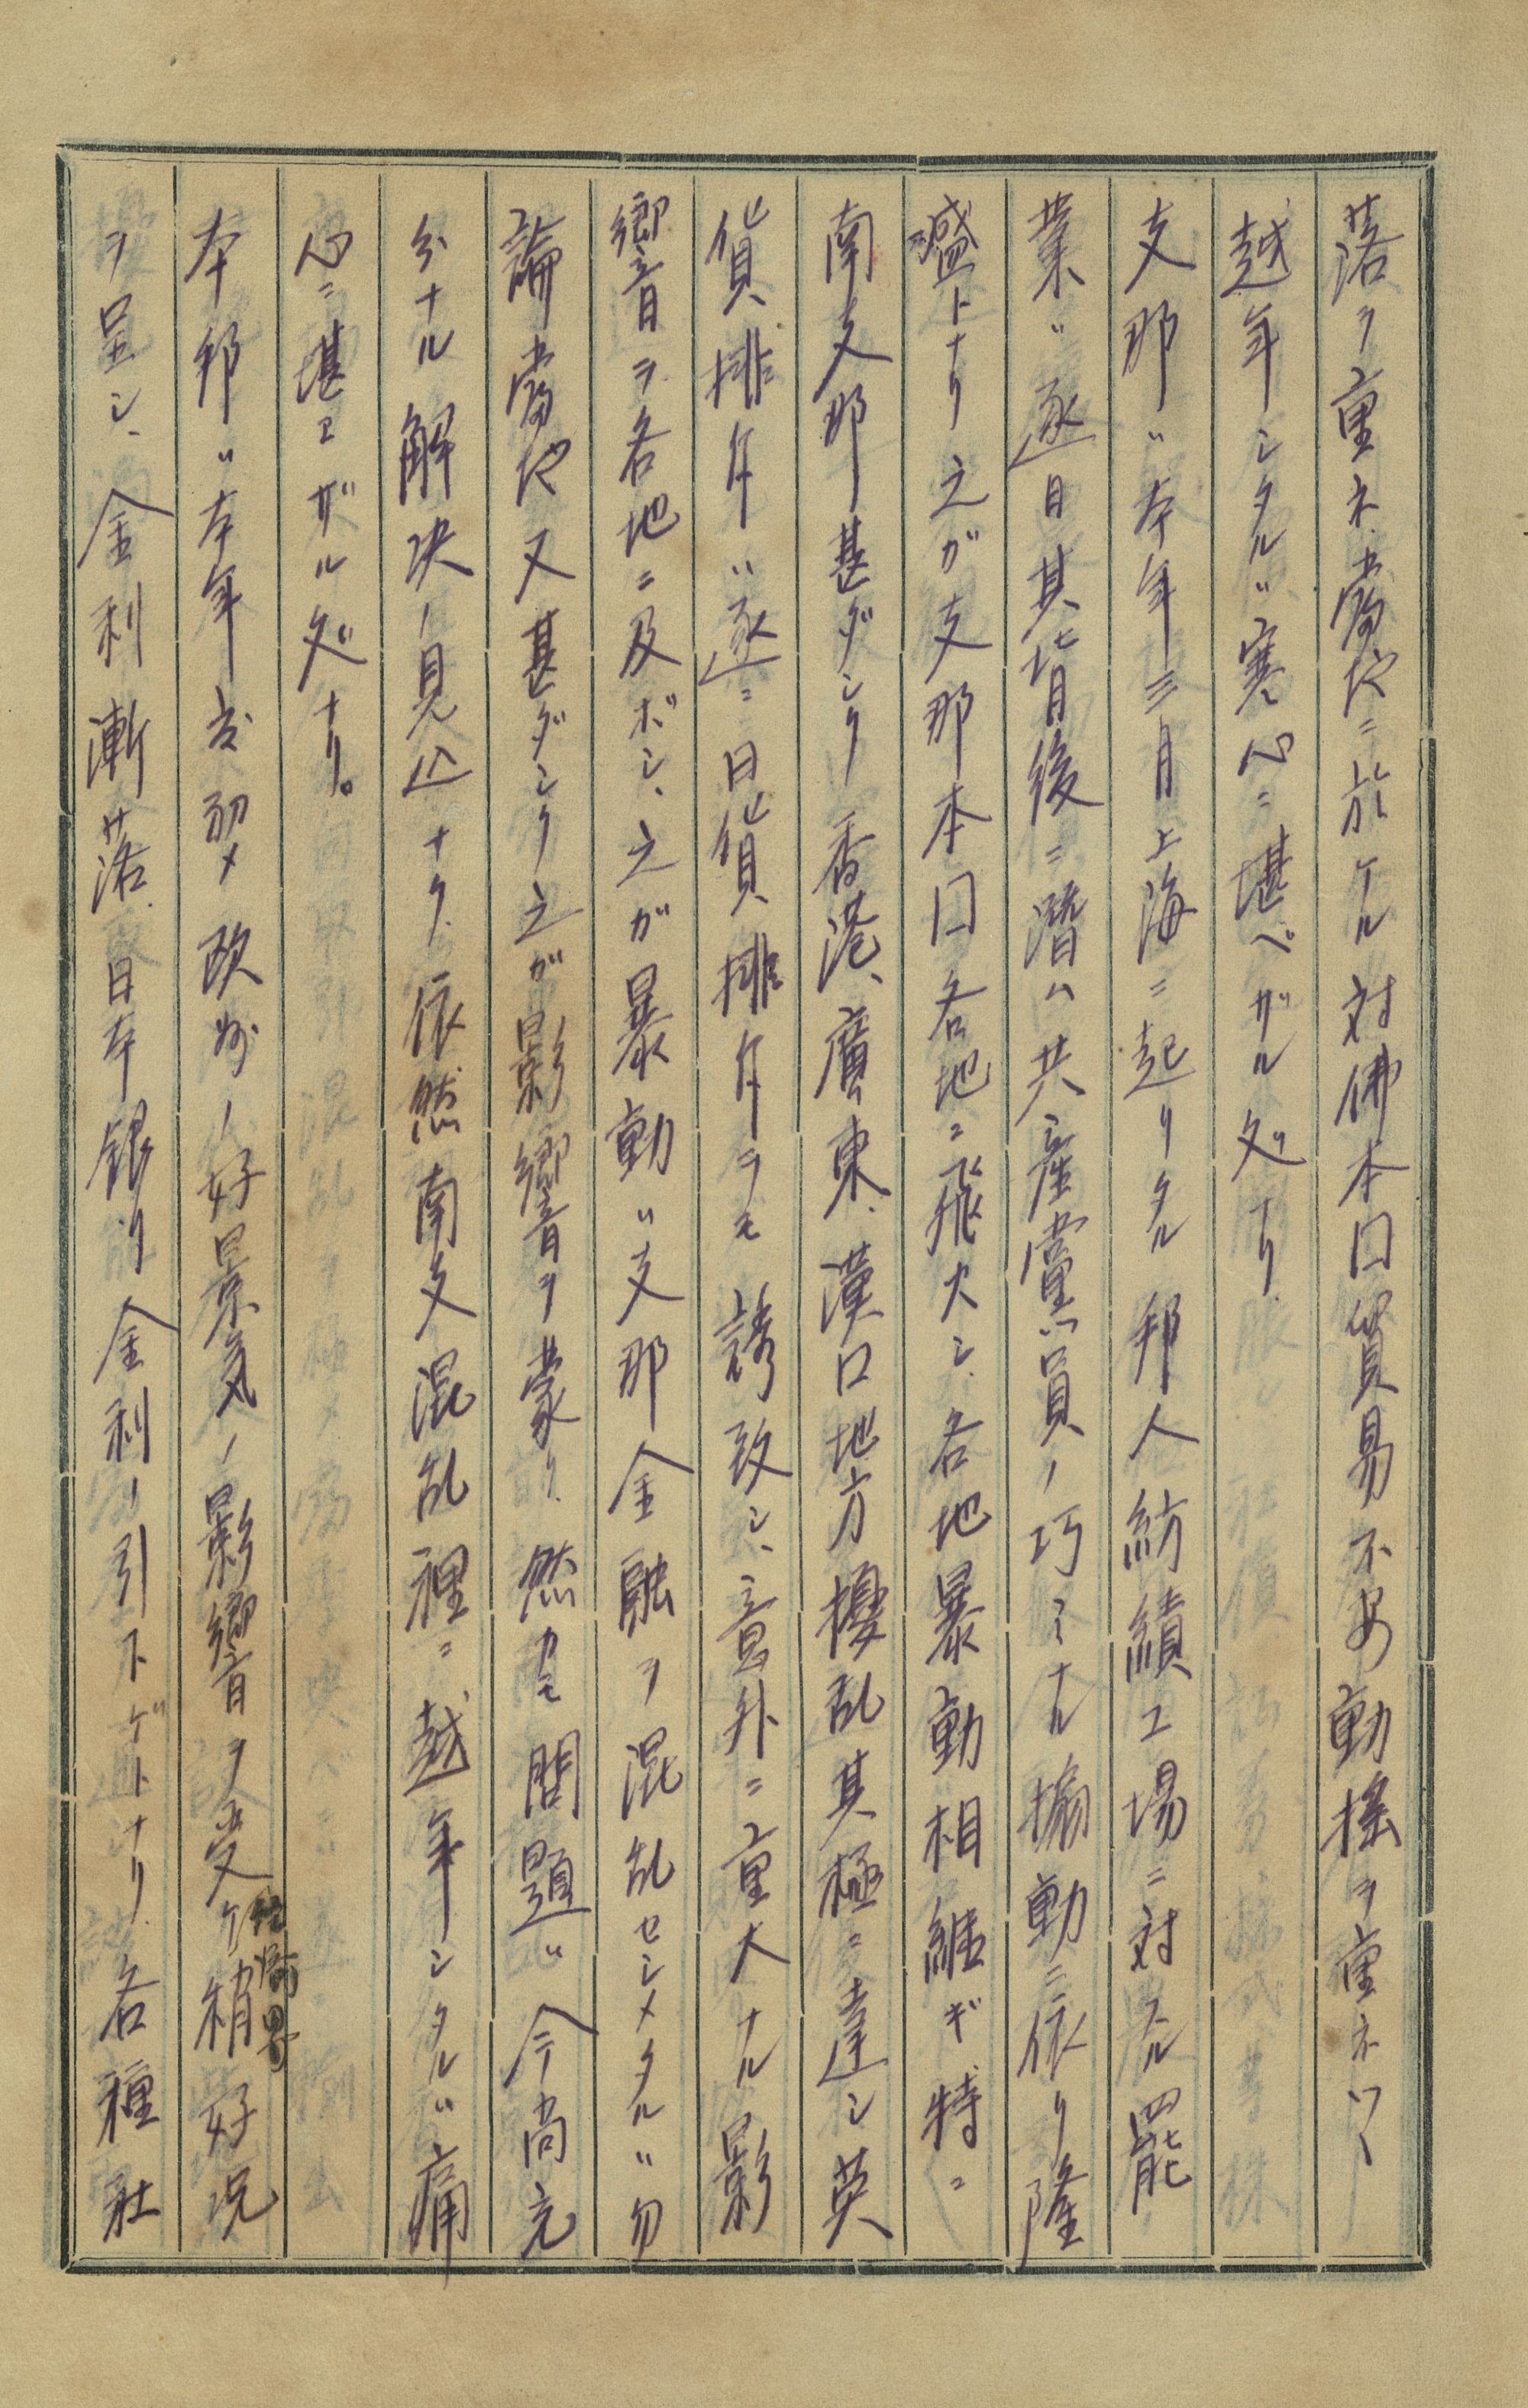 落ヲ重ネ、當代ニ於ケル対佛本口貿易不安動揺ヲ重ネツヽ
越年シタルハ寒心ニ堪ベザル処ナリ、
支那ハ本年三月上海ニ起リタル邦人紡績工場ニ対スル罷
業ハ逐日其背後ニ潜ム共産黨員ノ巧ミナル搧動ニ依リ隆
盛トナリ之ガ支那本口各地ニ飛火シ、各地暴動相継ギ特ニ
南支那甚ダシク香港、廣東、漢口地方擾乱其極ニ達シ英
貨排斥ハ逐ニ日貨排斥ヲモ誘致シ、意外ニ重大ナル影
響ヲ各地ニ及ボシ、之ガ暴動ハ支那金融ヲ混乱セシメタルハ勿
論當代又甚ダシク之ガ影響ヲ蒙リ、然カモ問題ハ今尚充
分ナル解决ノ見込ナク、依然南支混乱裡ニ越年シタルハ痛
心ニ堪エザル処ナリ。
本邦ハ本年初メ欧州ノ好景気ノ影響ヲ受ケ經済界稍好况
ヲ呈シ、金利漸落、日本銀行金利ノ引下ゲトナリ、各種社